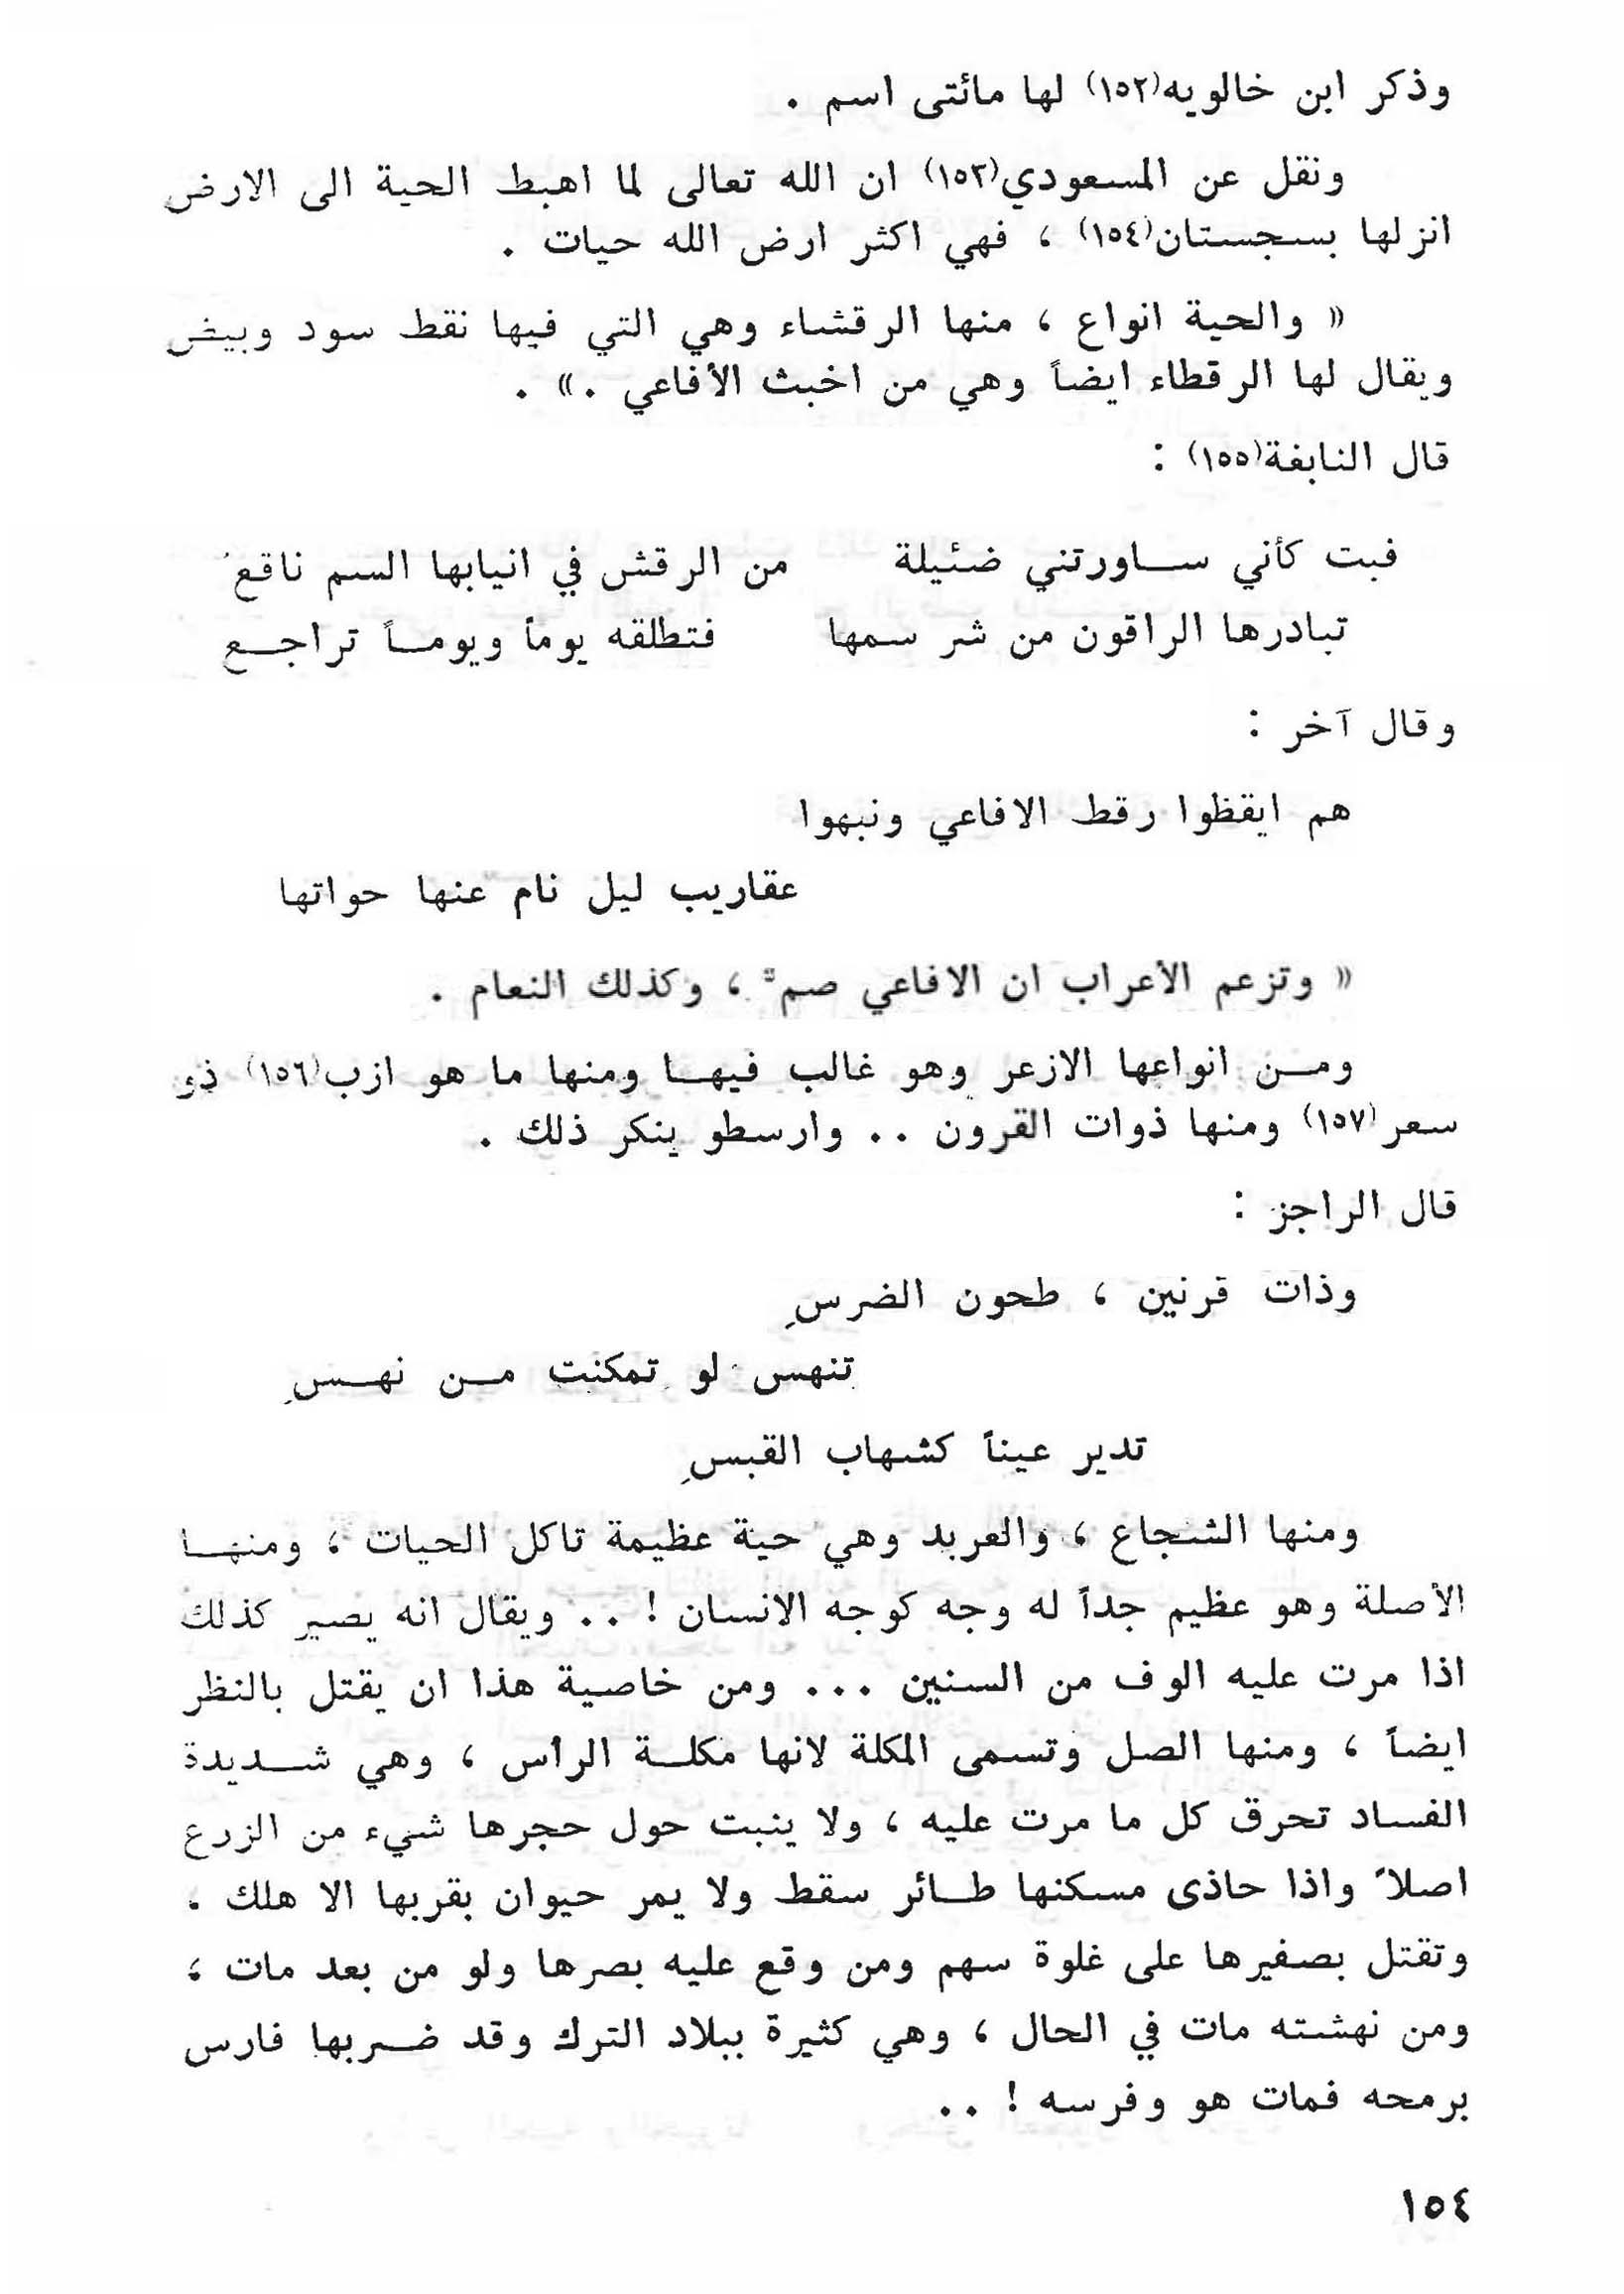 وذكر ابن خالويه(١٥٢) لها مائتى اسم .
ونقل عن المسعودي(١٥٣) ان الله تعالى لما اهبط الحية الى الارض
انزلها بسجستان(١٥٤) ، فهي اكثر ارض الله حيات .
« والحية انواع ، منها الرقشاء وهي التي فيها نقط سود وبيض
ويقال لها الرقطاء ايضاً وهي من اخبث الأفاعي .» .
قال النابغة(١٥٥) :
فبت كأني ساورتني ضئيلة من الرقش في انيابها السم ناقع
تبادرها الراقون من شر سمها فتطلقه يوماً ويوماً تراجع
وقال آخر :
هم ايقظوا رقط الافاعي ونبهوا
عقاريب ليل نام عنها حواتها
« وتزعم الأعراب ان الافاعي صمٌ ، وكذلك النعام .
ومن انواعها الازعر وهو غالب فيها ومنها ما هو ازب(١٥٦) ذو
سعر(١٥٧) ومنها ذوات القرون .. وارسطو ينكر ذلك .
قال الراجز :
وذات قرنين ، طحون الضرسِ
تنهس لو تمكنت من نهسِ
تدير عيناً كشهاب القبسِ
ومنها الشجاع ، والعربد وهي حية عظيمة تاكل الحيات ، ومنها
الأصلة وهو عظيم جداً له وجه كوجه الانسان ! .. ويقال انه يصير كذلك
اذا مرت عليه الوف من السنين ... ومن خاصية هذا ان يقتل بالنظر
ايضاً ، ومنها الصل وتسمى المكلة لانها مكلة الرأس ، وهي شديدة
الفساد تحرق كل ما مرت عليه ، ولا ينبت حول حجرها شيء من الزرع
اصلاً واذا حاذى مسكنها طائر سقط ولا يمر حيوان بقربها الا هلك .
وتقتل بصفيرها على غلوة سهم ومن وقع عليه بصرها ولو من بعد مات ،
ومن نهشته مات في الحال ، وهي كثيرة ببلاد الترك وقد ضربها فارس
برمحه فمات هو وفرسه ! ..
١٥٤